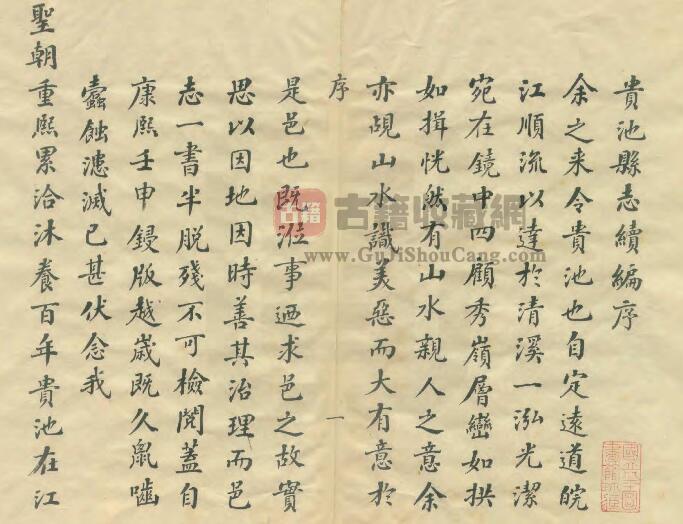 貴池縣志續編序
余之来令貴池也自定遠道皖
江順流以達於清溪一泓光潔
宛在鏡中四顧秀嶺層巒如拱
如揖恍然有山水親人之意余
亦覘山水識美惡而大有意於
序
一
是邑也既涖事迺求邑之故實
思以因地因時善其治理而邑
志一書半脱殘不可檢閱蓋自
康熙壬申鋟版越歲既久鼠嚙
蠹蝕漶滅已甚伏念我
聖朝重熙累洽沐養百年貴池在江
古籍
古籍收藏網
www.GuJiShouCang.com